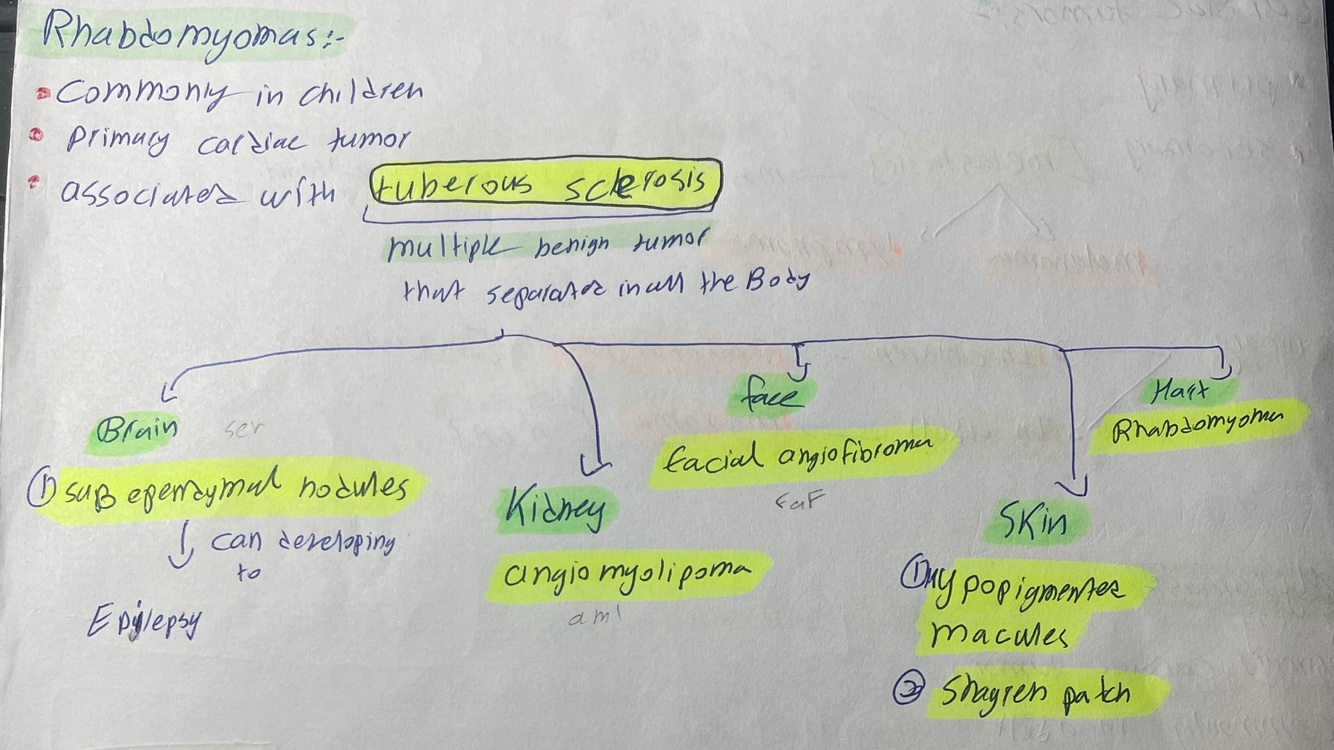 Rhabdomyomas:-
• Commonly in children
• Primary cardiac tumor
• associated with tuberous sclerosis
multiple benign tumor
that separated in all the Body
Brain
① sub ependymal nodules
can developing
to
Epilepsy
Kidney
angiomyolipoma
aml
face
facial angiofibroma
FaF
Skin
① Hypopigmented
macules
② Shagren patch
Hart
Rhabdomyoma